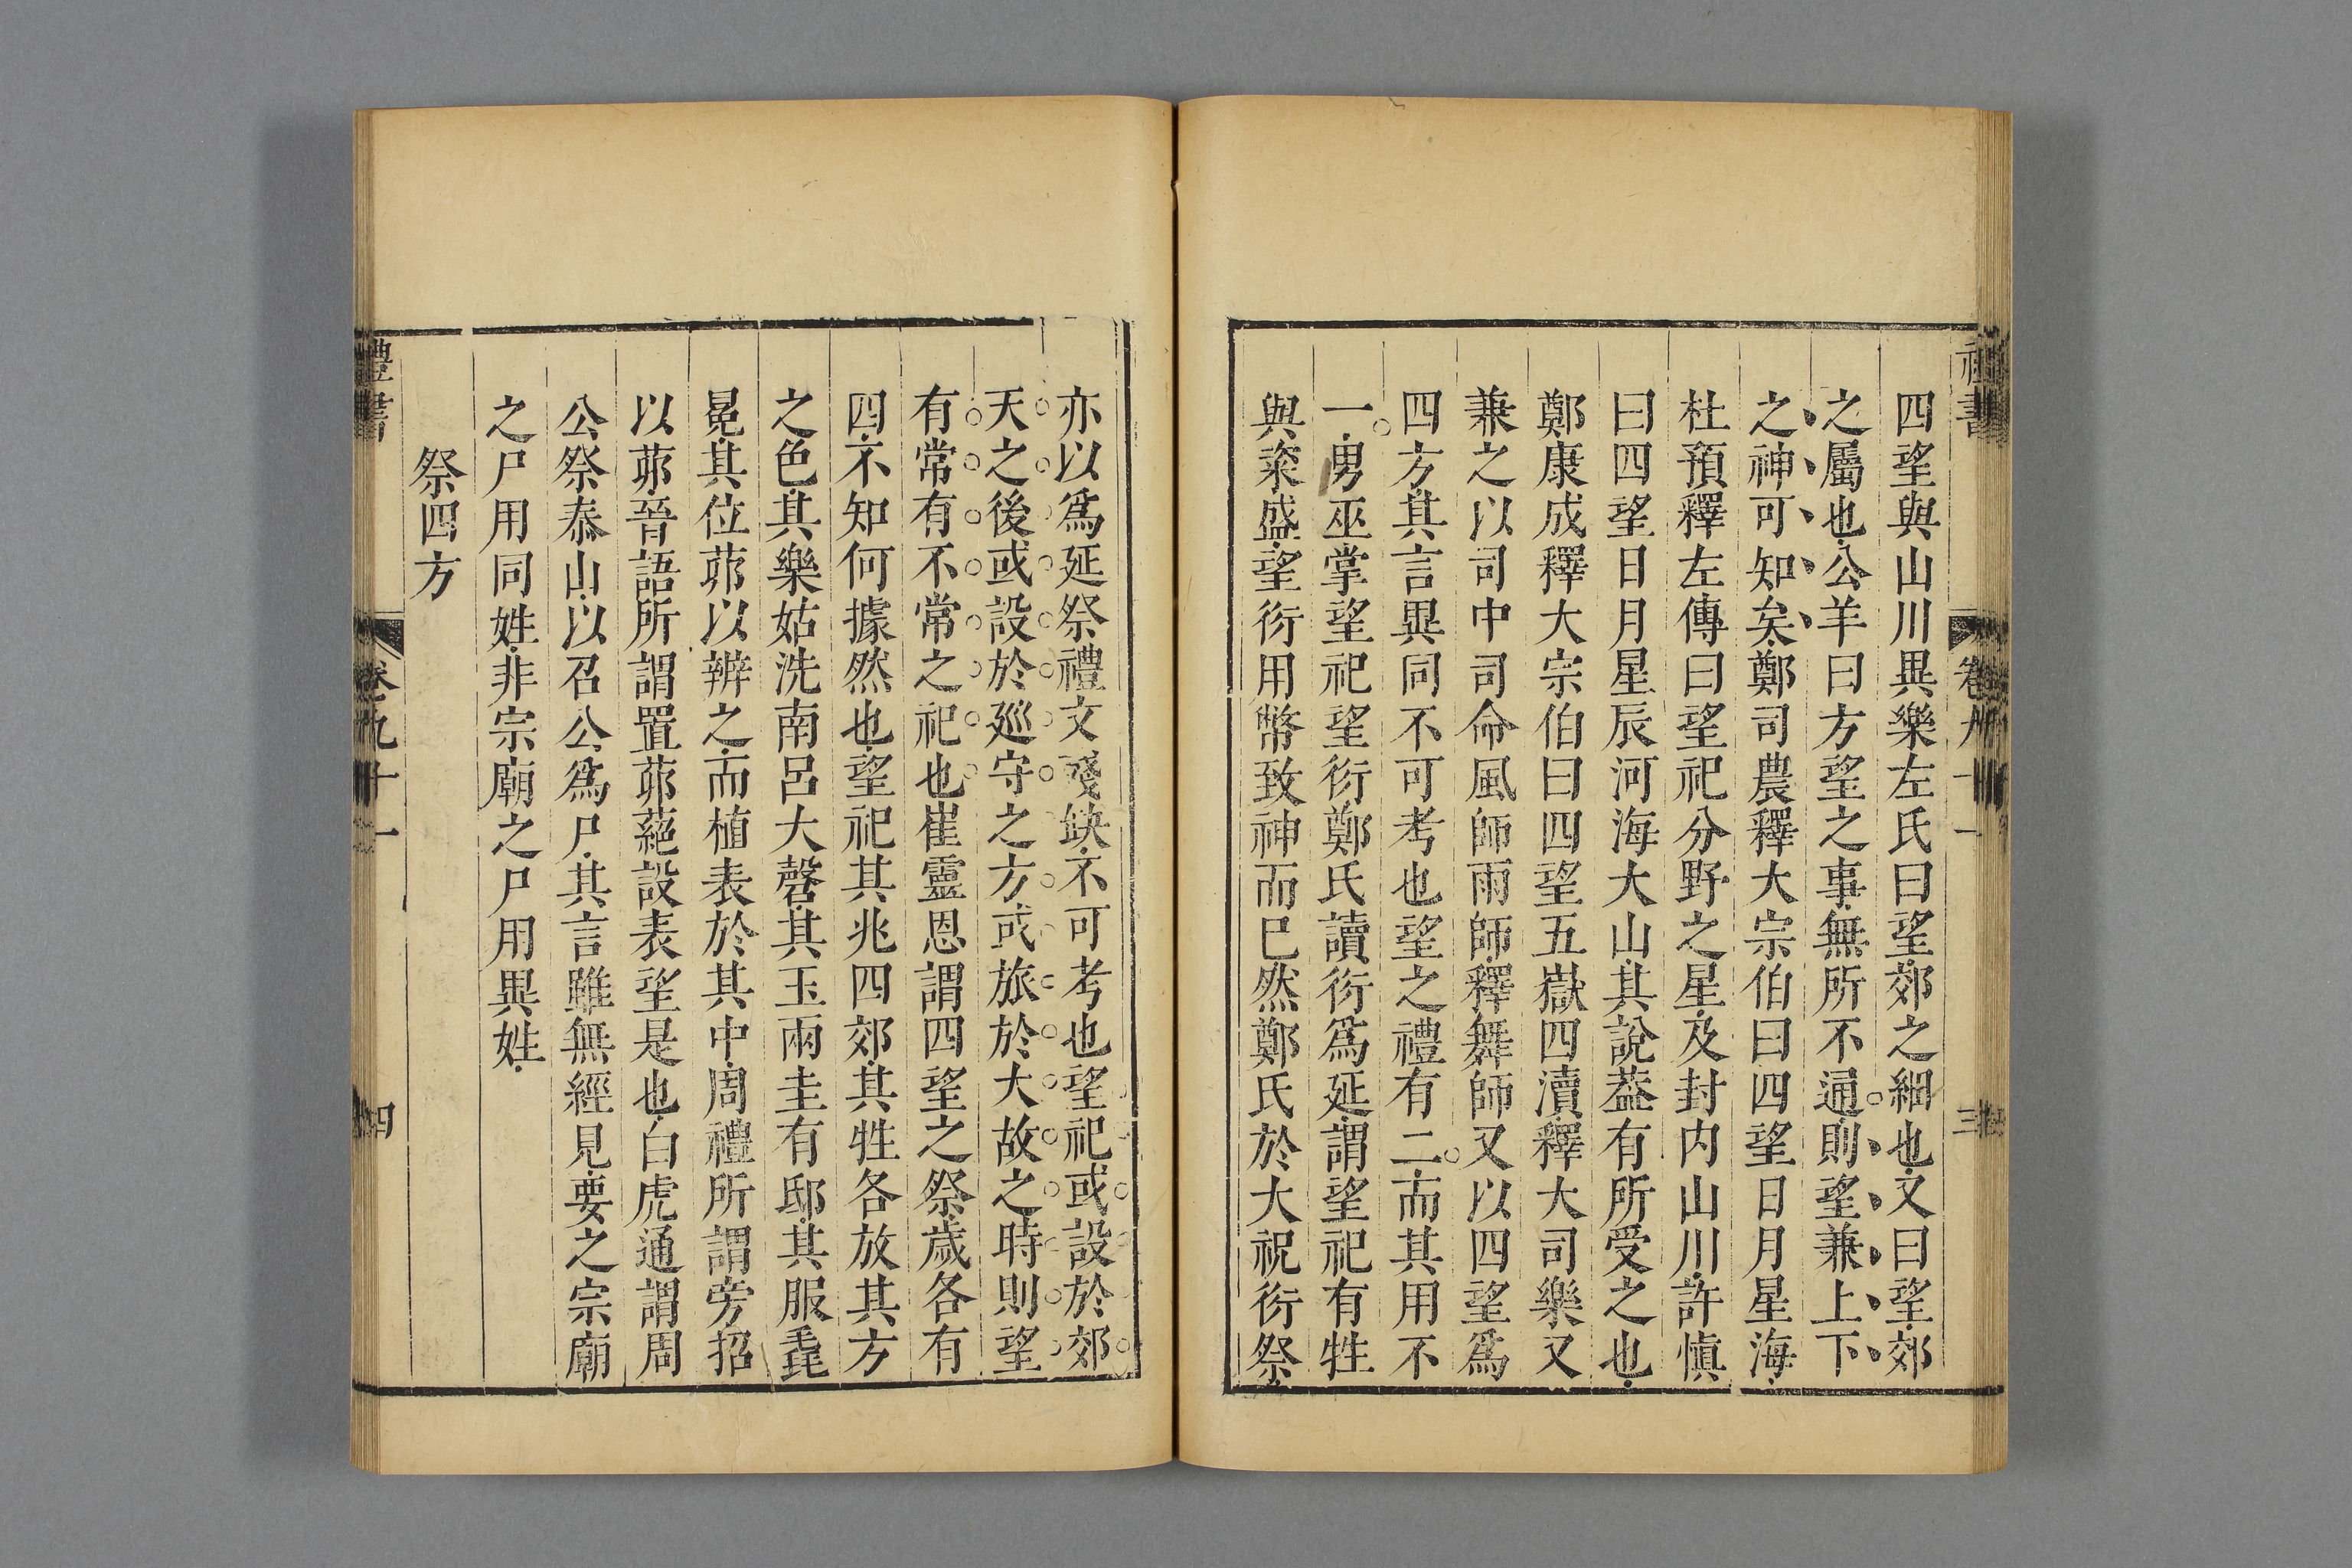 禮書
卷九十一
三
四望與山川異樂左氏曰望郊之細也又曰望郊
之屬也公羊曰方望之事無所不通則望兼上下
之神可知矣鄭司農釋大宗伯曰四望日月星海
杜預釋左傳曰望祀分野之星及封内山川許愼
曰四望日月星辰河海大山其說葢有所受之也
鄭康成釋大宗伯曰四望五嶽四瀆釋大司樂又
兼之以司中司命風師雨師釋舞師又以四望爲
四方其言異同不可考也望之禮有二而其用不
一男巫掌望祀望衍鄭氏讀衍爲延謂望祀有牲
與粢盛望衍用幣致神而巳然鄭氏於大祝衍祭
亦以爲延祭禮文殘缺不可考也望祀或設於郊
天之後或設於廵守之方或旅於大故之時則望
有常有不常之祀也崔靈恩謂四望之祭歲各有
四不知何據然也望祀其兆四郊其牲各放其方
之色其樂姑洗南呂大磬其玉兩圭有邸其服毳
冕其位茆以辨之而植表於其中周禮所謂旁招
以茆晉語所謂置茆蕝設表望是也白虎通謂周
公祭泰山以召公爲尸其言雖無經見要之宗廟
之尸用同姓非宗廟之尸用異姓
祭四方
禮書
卷九十一
四